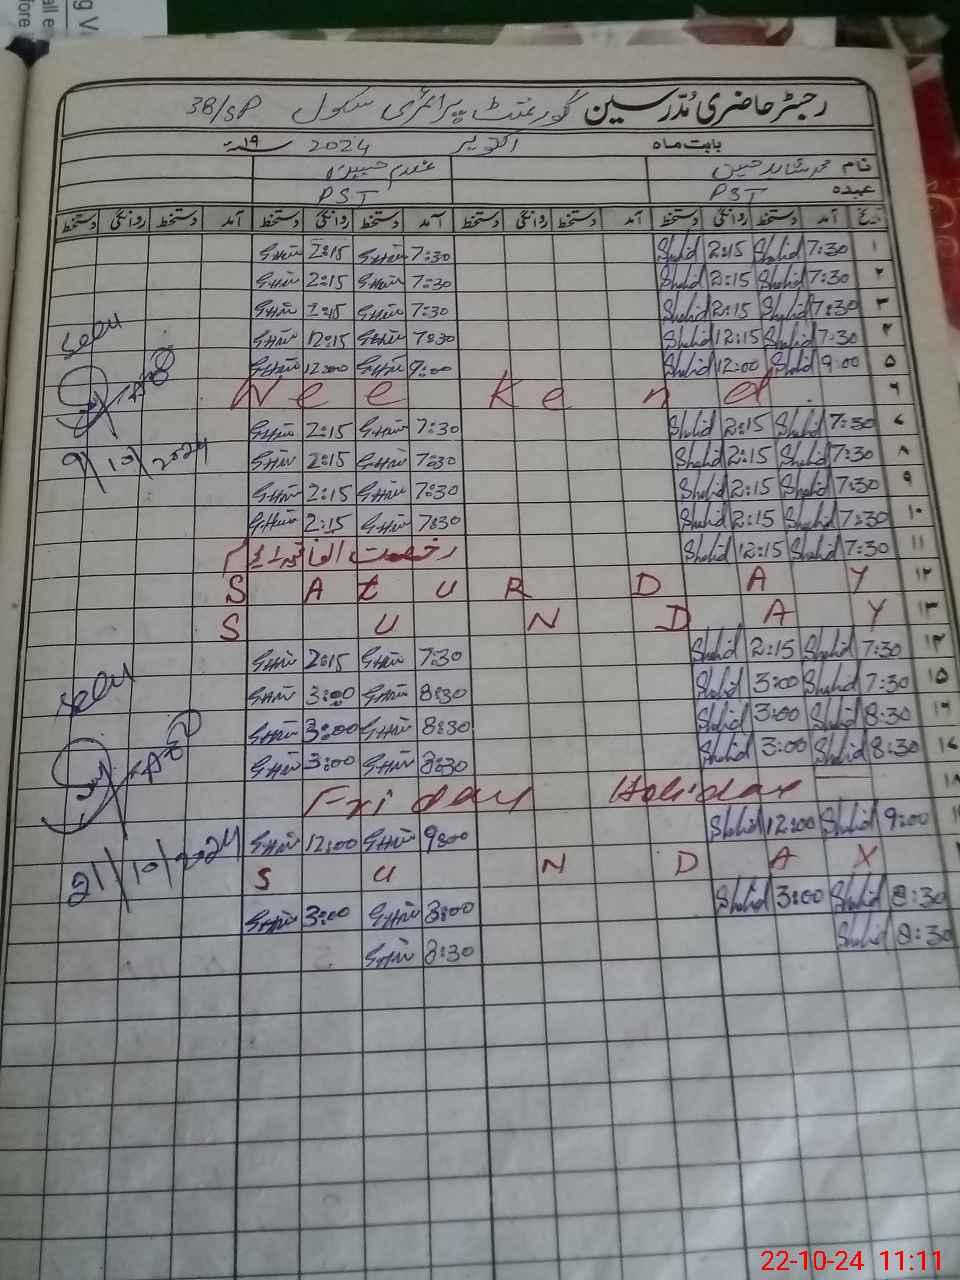 رجسٹر حاضری مُدرسین گورنمنٹ پرائمری سکول 38/SP
بابت ماہ اکتوبر 2024 ۱۹ء
نام محمد شاہد حسین غلام
عہدہ PST PST
آمد دستخط روانگی دستخط آمد دستخط روانگی دستخط آمد دستخط روانگی دستخط آمد دستخط روانگی دستخط
۱ 7:30 Shahid 2:15 Shahid 7:30 2:15
۲ 7:30 Shahid 2:15 Shahid 7:30 2:15
۳ 7:30 Shahid 2:15 Shahid 7:30 2:15
۴ 7:30 Shahid 12:15 Shahid 7:30 12:15 seen
۵ 9:00 Shahid 12:00 Shahid 9:00 12:00
۶ Weekend
۷ 7:30 Shahid 2:15 Shahid 7:30 2:15
۸ 7:30 Shahid 2:15 Shahid 7:30 2:15 9/10/2024
۹ 7:30 Shahid 2:15 Shahid 7:30 2:15
۱۰ 7:30 Shahid 2:15 Shahid 7:30 2:15
۱۱ 7:30 Shahid 12:15 Shahid رخصت
۱۲ SAtURDAY
۱۳ SUNDAY
۱۴ 7:30 Shahid 2:15 Shahid 7:30 2:15
۱۵ 7:30 Shahid 3:00 Shahid 8:30 3:00 seen
۱۶ 8:30 Shahid 3:00 Shahid 8:30 3:00
۱۷ 8:30 Shahid 3:00 Shahid 8:30 3:00
۱۸ Friday Holiday
9:00 Shahid 12:00 Shahid 9:00 12:00 21/10/2024
SUNDAY
8:30 Shahid 3:00 Shahid 8:00 3:00
8:30 Shahid 8:30
22-10-24 11:11